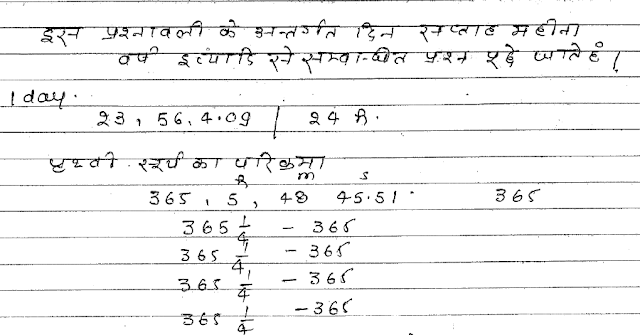 इस प्रश्नावली के अन्तर्गत दिन सप्ताह महीना
वर्ष इत्यादि से सम्बन्धित प्रश्न पूछे जाते हैं।
1 day.
23, 56, 4.09 | 24 h.
पृथ्वी सूर्य का परिक्रमा
h m s
365, 5, 48 45.51. 365
365 1/4 - 365
365 1/4 - 365
365 1/4 - 365
365 1/4 - 365